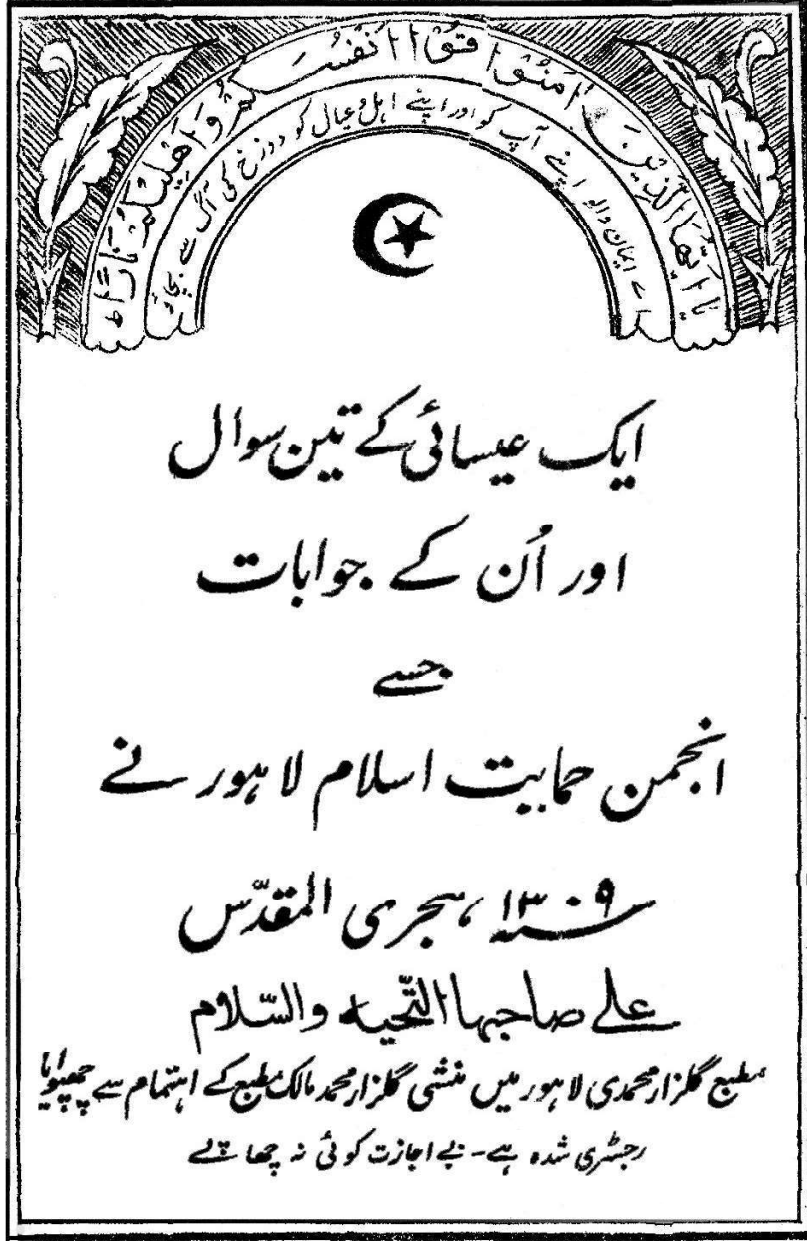 یا ایھا الذین اٰمنوا قوا انفسکم و اھلیکم نارًا
اے ایمان والو اپنے آپ کو اور اپنے اہل و عیال کو دوزخ کی آگ سے بچاؤ
ایک عیسائی کے تین سوال
اور اُن کے جوابات
جسے
انجمن حمایت اسلام لاہور نے
سنہ ۱۳۰۹ ہجری المقدّس
علے صاحبہا التّحیہ والسّلام
مطبع گلزار محمدی لاہور میں منشی گلزار محمد مالک مطبع کے اہتمام سے چھپوایا
رجسٹری شدہ ہے۔ بے اجازت کوئی نہ چھاپے